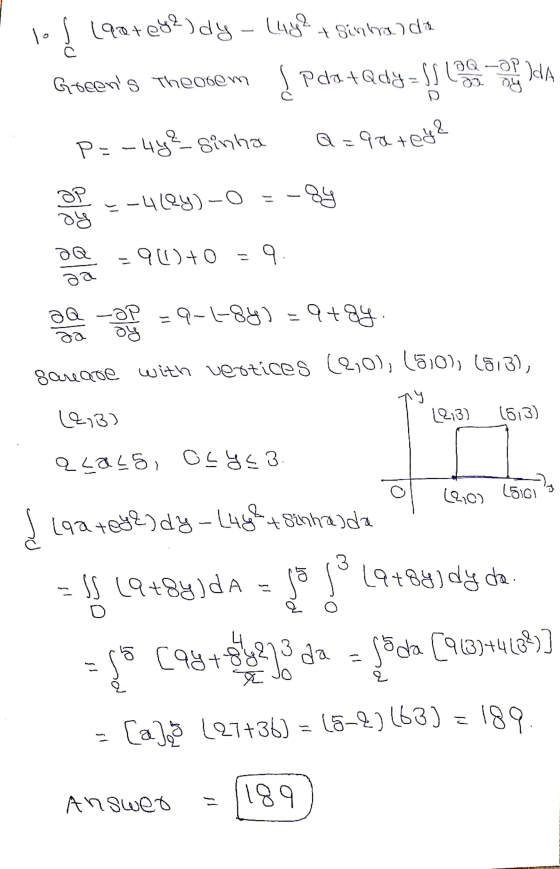 1. ∫_C (9x+e^{y^2})dy - (4y^2+sinhx)dx
Green's Theorem ∫_C Pdx+Qdy = ∬_D (∂Q/∂x - ∂P/∂y)dA
P = -4y^2 - sinhx Q = 9x+e^{y^2}
∂P/∂y = -4(2y)-0 = -8y
∂Q/∂x = 9(1)+0 = 9.
∂Q/∂x - ∂P/∂y = 9-(-8y) = 9+8y.
square with vertices (2,0), (5,0), (5,3),
(2,3)
2≤x≤5, 0≤y≤3.
y
(2,3) (5,3)
0 (2,0) (5,0) x
∫_C (9x+e^{y^2})dy - (4y^2+sinhx)dx
= ∬_D (9+8y)dA = ∫_2^5 ∫_0^3 (9+8y)dy dx.
= ∫_2^5 [9y+8y^2/2]_0^3 dx = ∫_2^5 dx [9(3)+4(3^2)]
= [x]_2^5 (27+36) = (5-2)(63) = 189.
Answer = 189